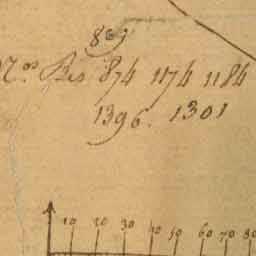 869
Nos Bis 874 1174 1184
1396. 1301
10 20 30 40 50 60 70 80